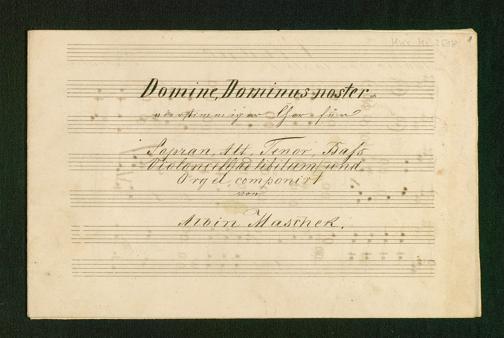 Domine, Dominus noster
vierstimmiger Chor für
Sopran, Alt, Tenor, Bass
Violoncell ad libitum und
Orgel, componirt
von
Albin Maschek.